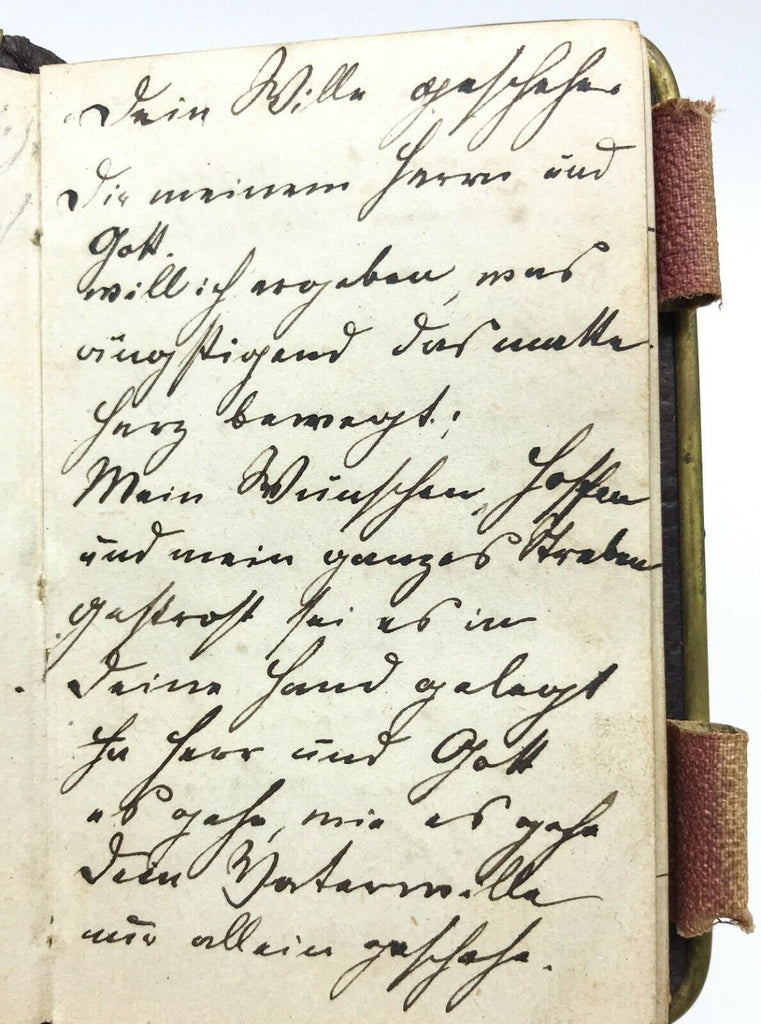 Dein Wille geschehe.
Dir meinem Herrn und
Gott.
will ich ergeben, was
ängstigend das matte
Herz bewegt;
Mein Wünschen, Hoffen
und mein ganzes Streben
getrost sei es in
Deine Hand gelegt
Herr und Gott
es gehe, wie es gehe
Dein Vaterwille
nur allein geschehe.